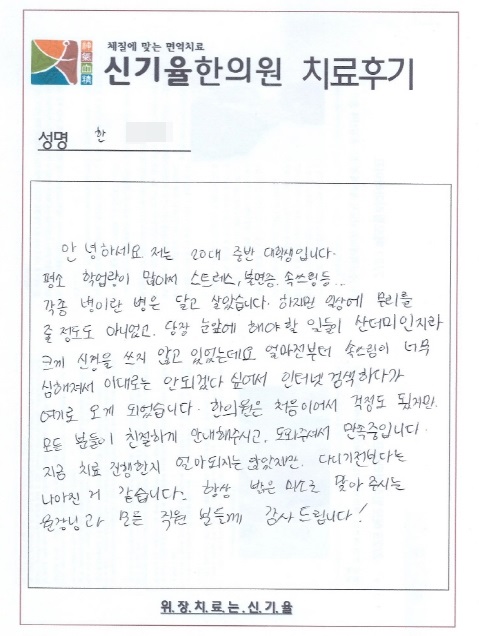 체질에 맞는 면역치료
신기율한의원 치료후기
성명 한
안녕하세요 저는 20대 중반 대학생입니다.
평소 학업량이 많아서 스트레스, 불면증, 속쓰림등...
각종 병이란 병은 달고 살았습니다. 하지만 일상에 무리를
줄 정도도 아니었고, 당장 눈앞에 해야 할 일들이 산더미인지라
크게 신경을 쓰지 않고 있었는데요 얼마전부터 속쓰림이 너무
심해져서 이대로는 안되겠다 싶어서 인터넷 검색하다가
여기로 오게 되었습니다. 한의원은 처음이어서 걱정도 됬지만.
모든 분들이 친절하게 안내해주시고, 도와주셔서 만족중입니다.
지금 치료 진행한지 얼마되지는 않았지만. 다니기전보다는
나아진 거 같습니다. 항상 밝은 미소로 맞아 주시는
원장님과 모든 직원 분들께 감사 드립니다!
위.장.치.료.는.신.기.율